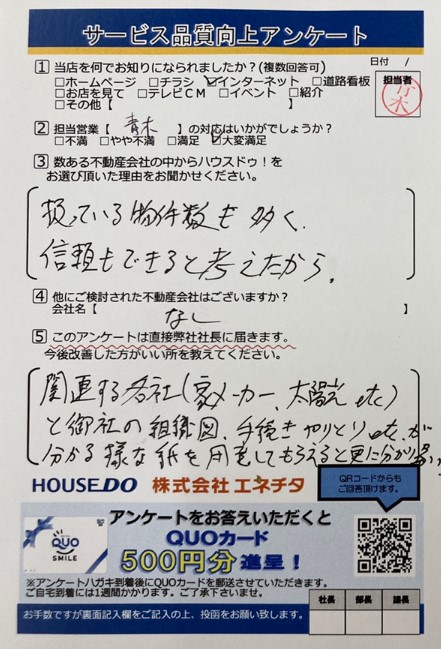 サービス品質向上アンケート
日付 /
担当者
青木
1 当店を何でお知りになられましたか?(複数回答可)
□ホームページ □チラシ ☑インターネット □道路看板
□お店を見て □テレビCM □イベント □紹介
□その他【 】
2 担当営業【 青木 】の対応はいかがでしょうか?
□不満 □やや不満 □満足 ☑大変満足
3 数ある不動産会社の中からハウスドゥ!を
お選び頂いた理由をお聞かせください。
扱っている物件数も多く、
信頼もできると考えたから。
4 他にご検討された不動産会社はございますか?
会社名【 なし 】
5 このアンケートは直接弊社社長に届きます。
今後改善した方がいい所を教えてください。
関連する各社(家メーカー、太陽光 etc)
と御社の組織図、手続きやりとり etc、が
分かる様な紙を用意してもらえると更に分かり易い
HOUSE DO 株式会社 エネチタ
QRコードからも
ご回答頂けます。
QUO
SMILE
アンケートをお答えいただくと
QUOカード
500円分 進呈!
※アンケートハガキ到着後にQUOカードを郵送させていただきます。
ご自宅到着には1週間かかります。ご了承下さいませ。
社長 部長 課長
お手数ですが裏面記入欄をご記入の上、投函をお願い致します。